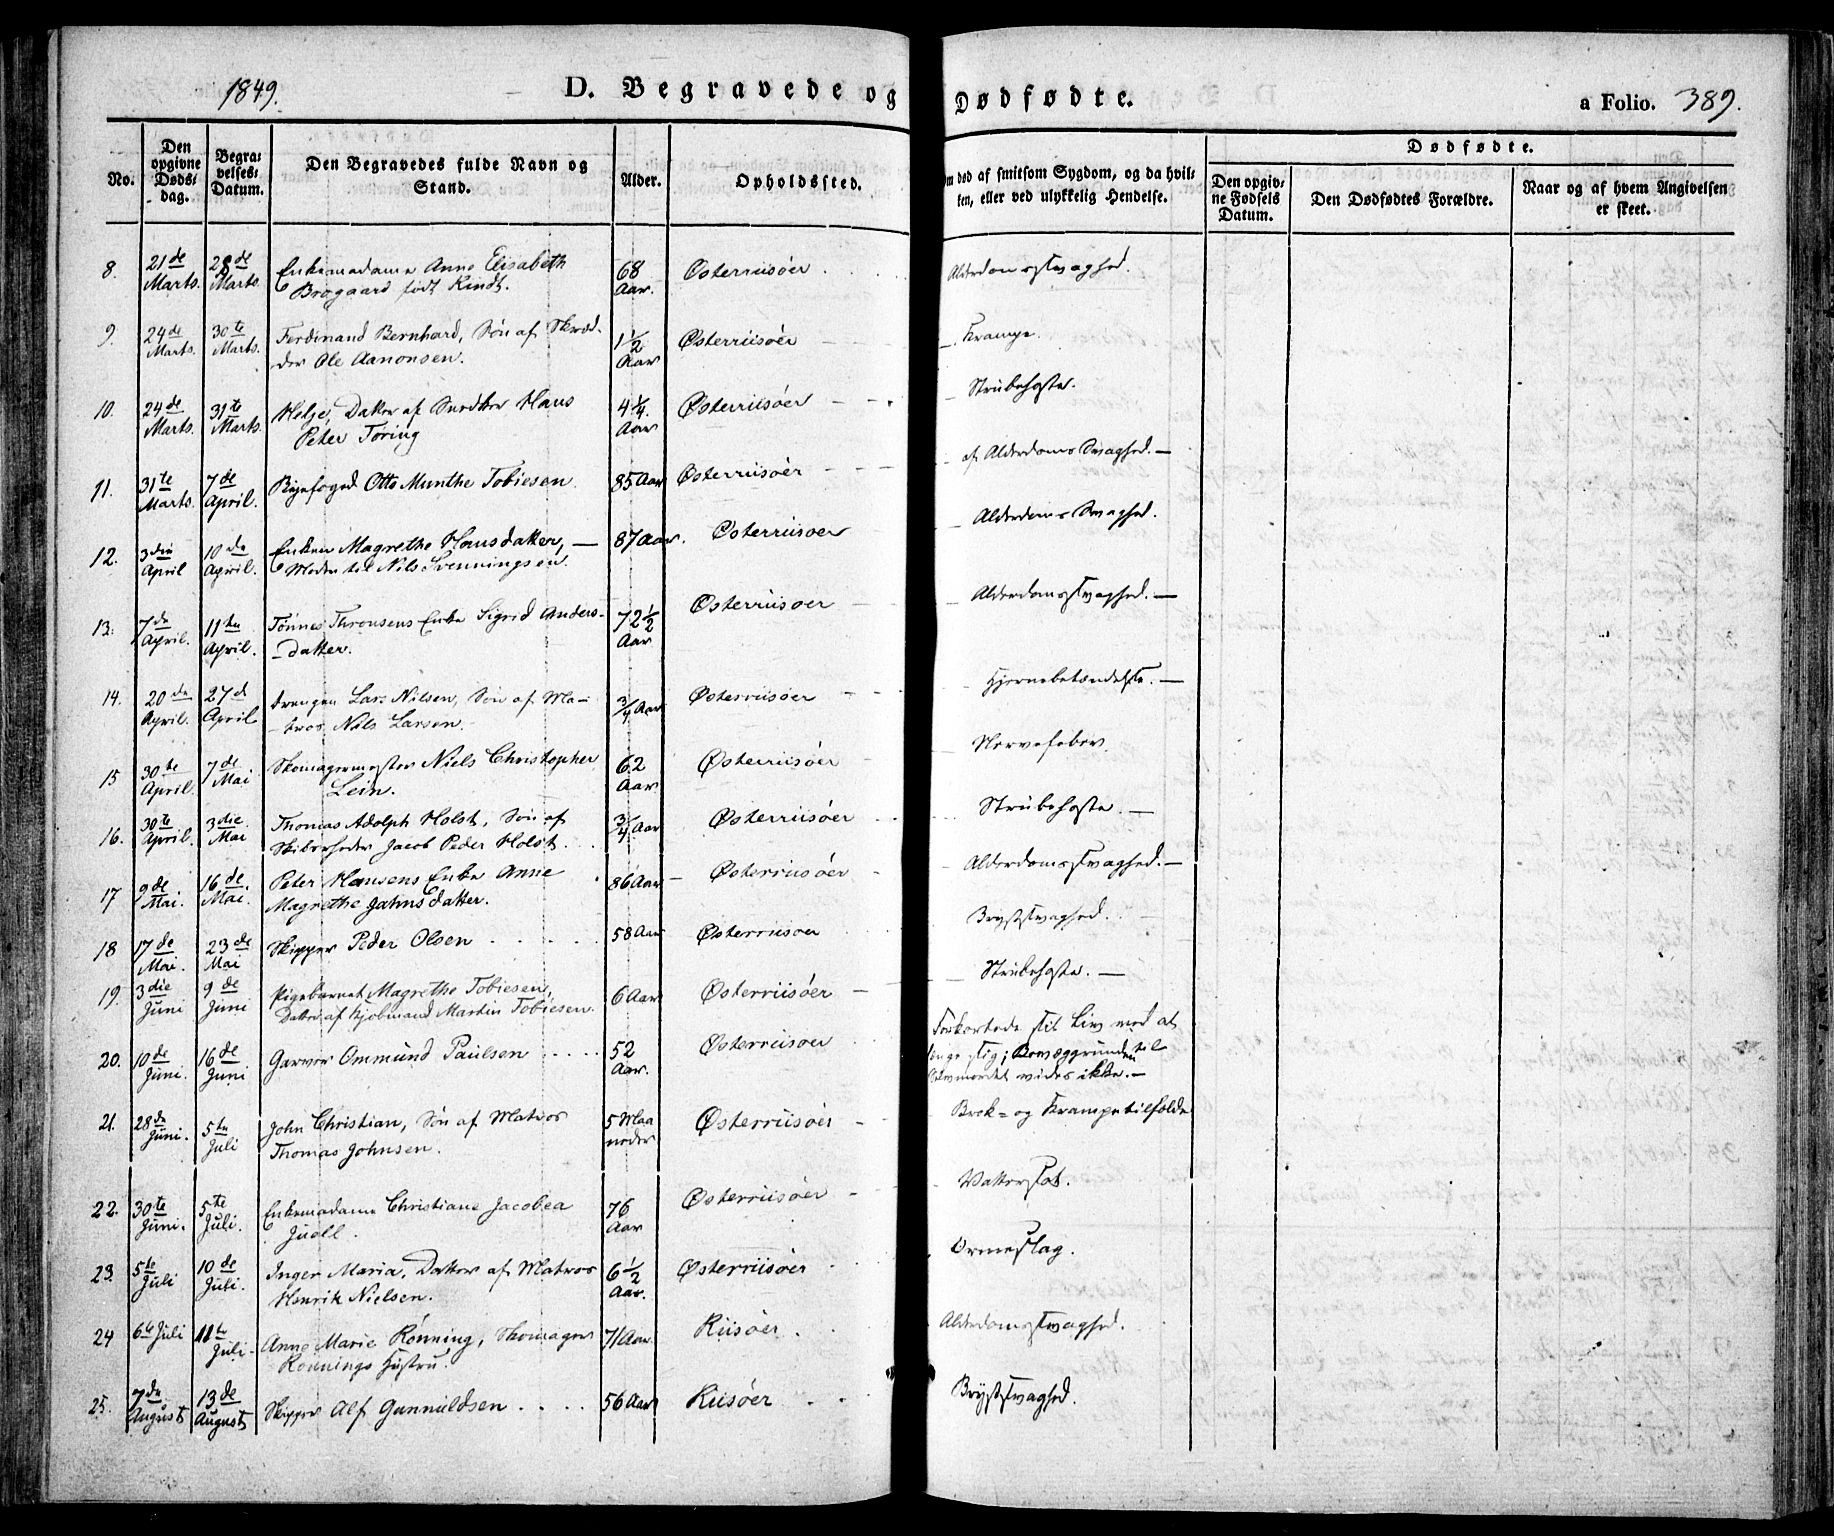 1849. D. Begravede og Dødfødte. a Folio. 389.
No. | Den opgivne Døds-dag. | Begra-velses-Datum. | Den Begravedes fulde Navn og Stand. | Alder. | Opholdssted. | Om død af smitsom Sygdom, og da hvil-ken, eller ved ulykkelig Hendelse. | Dødfødte. | Den opgiv-ne Fødsels Datum. | Den Dødfødtes Forældre. | Naar og af hvem Angivelsen er skeet.
8. 21de Marts. 28de Marts. Enkemadame Anne Elisabeth 68 Aar. Østerriisøer Alderdomssvaghed.
Brogaard født Kindt.
9. 24de Marts. 30te Marts. Ferdinand Bernhard, Søn af Skræd- 1 1/2 Aar Østerriisöer Krampe.
der Ole Aanonsen.
10. 24de Marts. 31te Marts. Helje, Datter af Snedker Hans 4 1/4 Aar Østerriisöer Strubehoste.
Peter Toring
11. 31te Marts. 7de April. Byefoged Otto Munthe Tobiesen 85 Aar Østerriisöer af Alderdoms Svaghed.—
12. 3die April 10de April. Enken Magrethe Hansdatter, — 87 Aar. Østerriisöer Alderdoms Svaghed.
Moder til Nils Svenningsen.
13. 7de April. 11te April. Tönnes Thronsens Enke Sigrid Anders- 72 1/2 Aar Østerriisoer Alderdomssvaghed.—
-datter.
14. 20de April. 27de April Drengen Lars Nilsen, Søn af Ma- 3/4 Aar Østerriisöer Hjernebetændelse.—
-tros Nils Larsen.
15 30te April. 7de Mai Skomagermester Niels Christopher 62 Aar Østerriisöer Nervefeber.
Lein.
16. 30te April. 3die Mai Thomas Adolph Holst, Søn af 3/4 Aar Østerriisöer Strubehoste.—
Skibsrheder Jacob Peder Holst.
17 9de Mai. 16de Mai. Peter Hansens Enke Anne 86 Aar Østerriisöer Alderdomssvaghed.—
Magrethe Jahnsdatter.
18 17de Mai. 23de Mai Skipper Peder Olsen 58 Aar Østerriisoer Brystsvaghed.
19. 3die Juni 9de Juni Pigebarnet Magrethe Tobiesen, 6 Aar Østerriisöer Strubehoste.—
Datter af Kjøbmand Martin Tobiesen.
20. 10de Juni. 16de Juni Garver Ommund Paulsen 52 Aar. Østerriisoer Forkortede sit Liv med at
hænge sig; Bevæggrunden til
Selvmordet vides ikke.—
21. 28de Juni. 5te Juli John Christian, Søn af Matros 5 Maa neder Østerriisöer Brok- og Krampetilfælde
Thomas Johnsen.
22. 30te Juni. 5te Juli. Enkemadame Christiane Jacobea 76 Aar Østerriisöer Vattersot.
Juell.
23. 5te Juli 10de Juli. Inger Maria, Datter af Matros 6 1/2 Aar. Østerriisöer Ormeslag.
Henrik Nielsen.
24 6te Juli 11te Juli. Anne Marie Rönning, Skomager 71 Aar. Riisöer Alderdomssvaghed.
Rönnings Hustru.
25. 7de August 13de August Skipper Alf Gunnuldsen 56 Aar Riisöer Brystsvaghed.